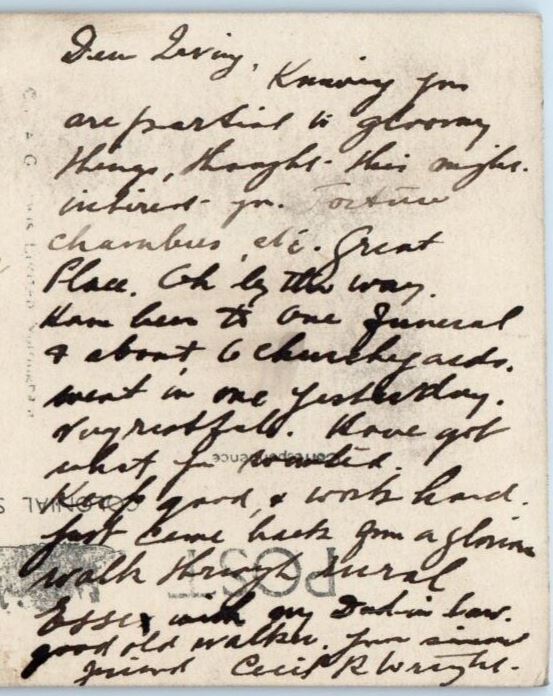 Dear Irving, Knowing you
are partial to gloomy
things, thought this might
interest you. Torture
chambers, etc. Great
Place. Oh by the way.
Have been to one funeral
& about 6 churchyards.
went in one yesterday.
Very restful. Have got
what you wanted.
Keep good, & work hard.
Just came back from a glorious
walk through rural
Essex with my Dad in law.
good old walker. Your sincere
friend Cecil R Wright.
Correspondence
COLONIAL S
POST